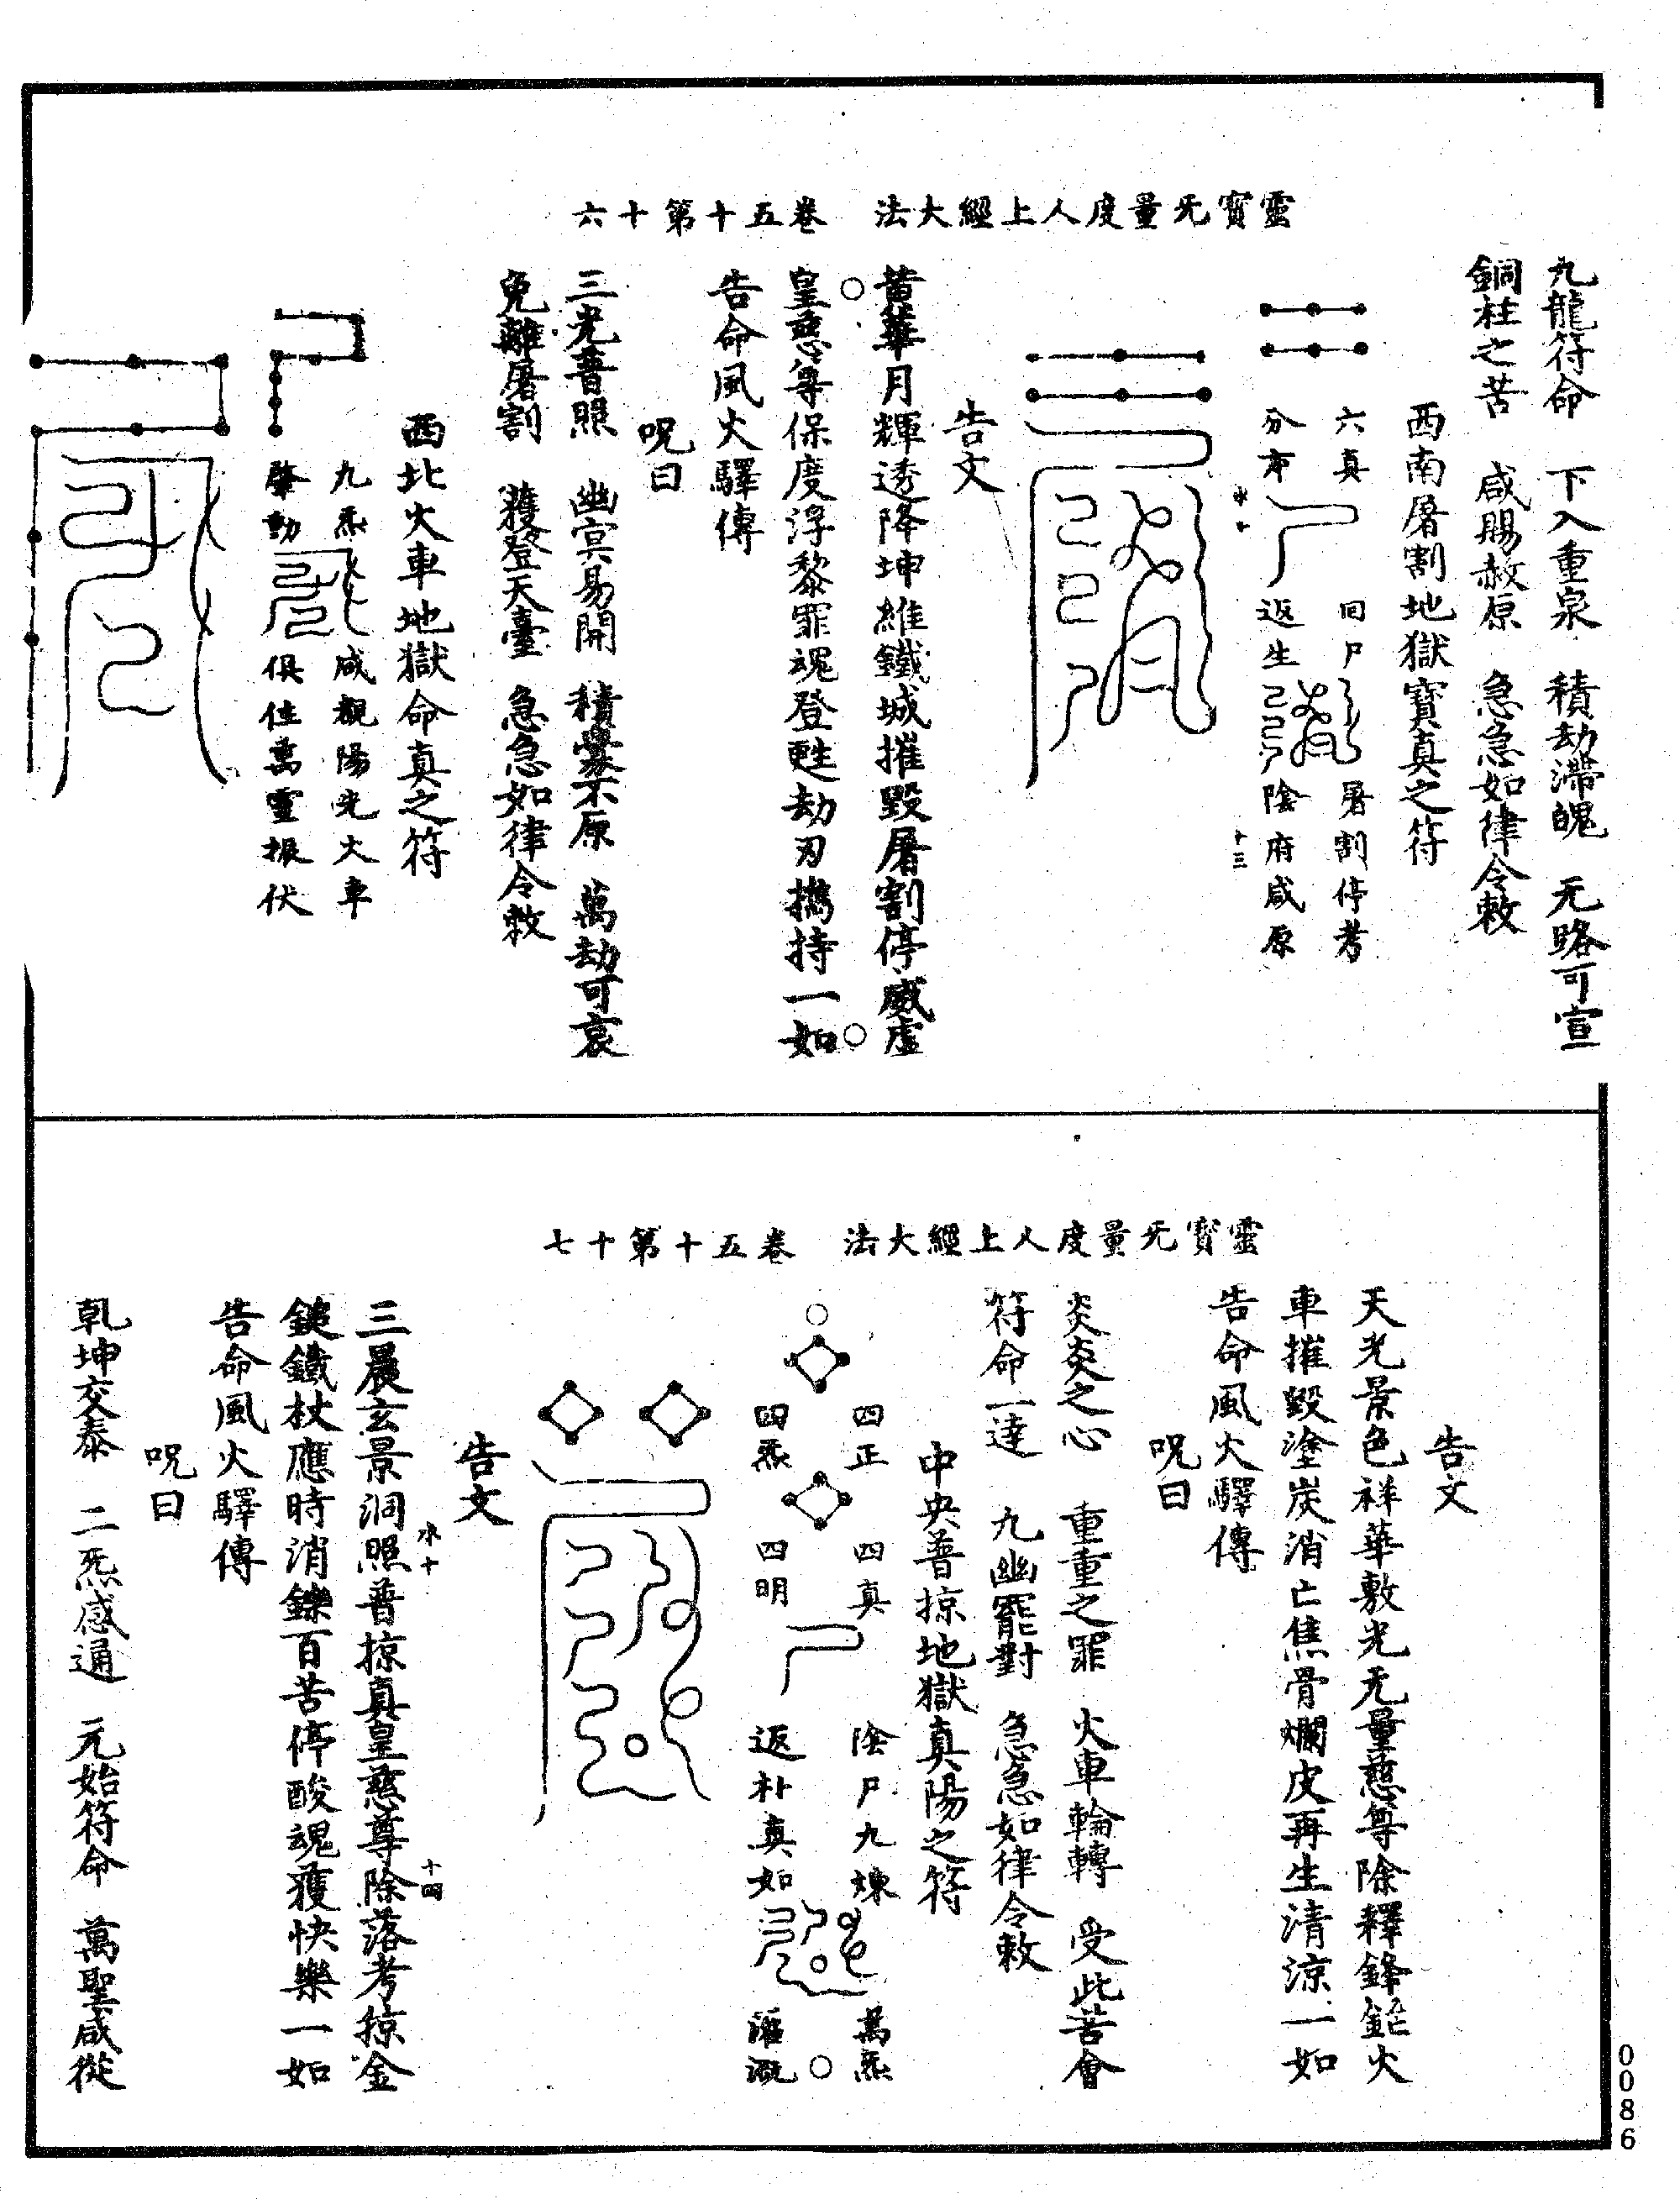 靈寶旡量度人上經大法　卷五十第十六
九龍符命　下入重泉　積劫滯魄　无路可宣
銅柱之苦　咸賜赦原　急急如律令敕
西南屠割地獄寶真之符
六真　回尸　屠割停考
分布　返生　陰府咸原
十三
告文
黃華月輝透降坤維鐵城摧毀屠割停威虛
皇慈尊保度浮黎罪魂登甦劫刃攜持一如
告命風火驛傳
呪曰
三光普照　幽冥易開　積寡不原　萬劫可哀
免離屠割　獲登天臺　急急如律令敕
西北火車地獄命真之符
九炁　咸覩陽光火車
肇動　俱住萬靈振伏
靈寶旡量度人上經大法　卷五十第十七
告文
天光景色祥華敷光无量慈尊除釋鋒鋩火
車摧毀塗炭消亡焦骨爛皮再生清涼一如
告命風火驛傳
呪曰
炎炎之心　重重之罪　火車輪轉　受此苦會
符命一達　九幽罷對　急急如律令敕
中央普掠地獄真陽之符
四正　四真　陰尸九煉　萬炁
四炁　四明　返朴真如　滙溉
告文
水十　十四
三晨玄景洞照普掠真皇慈尊除落考掠金
鎚鐵杖應時消鑠百苦停酸魂獲快樂一如
告命風火驛傳
呪曰
乾坤交泰　二炁感通　元始符命　萬聖咸從
0086